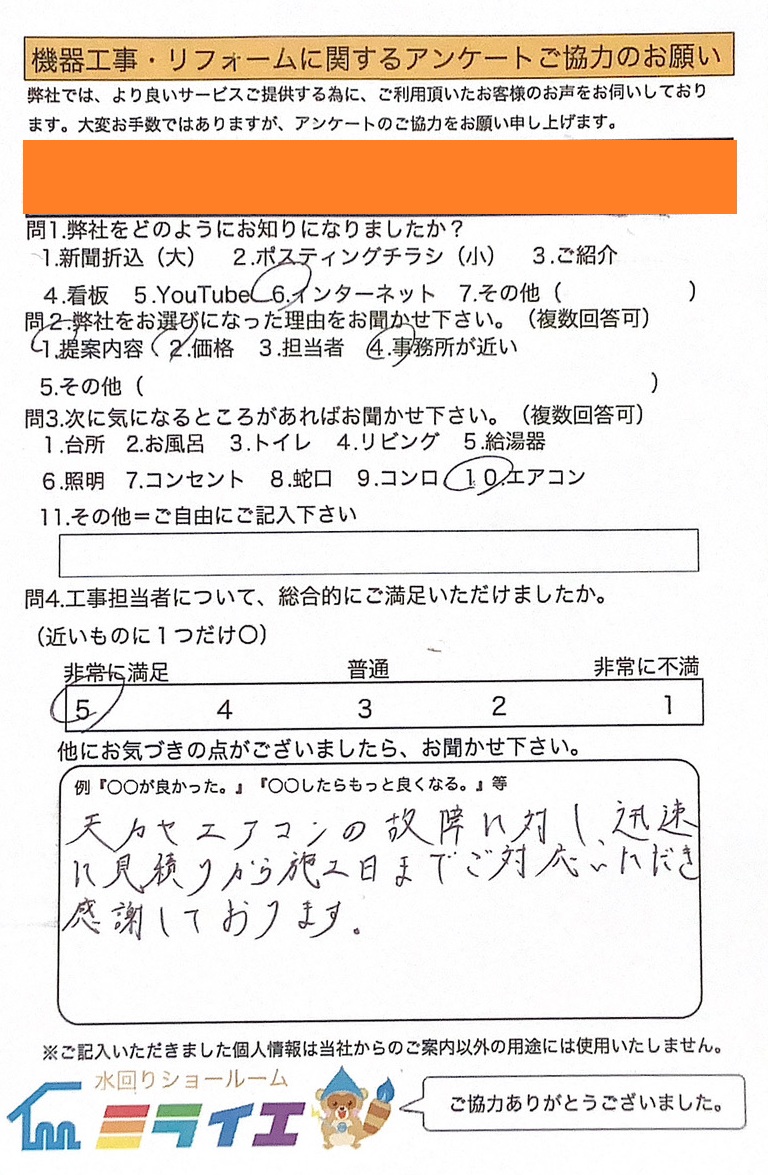 機器工事・リフォームに関するアンケートご協力のお願い
弊社では、より良いサービスご提供する為に、ご利用頂いたお客様のお声をお伺いしており
ます。大変お手数ではありますが、アンケートのご協力をお願い申し上げます。
問1.弊社をどのようにお知りになりましたか？
1.新聞折込（大） 2.ポスティングチラシ（小） 3.ご紹介
4.看板 5.YouTube 6.インターネット 7.その他（ ）
問2.弊社をお選びになった理由をお聞かせ下さい。（複数回答可）
1.提案内容 2.価格 3.担当者 4.事務所が近い
5.その他（ ）
問3.次に気になるところがあればお聞かせ下さい。（複数回答可）
1.台所 2.お風呂 3.トイレ 4.リビング 5.給湯器
6.照明 7.コンセント 8.蛇口 9.コンロ 10.エアコン
11.その他＝ご自由にご記入下さい
問4.工事担当者について、総合的にご満足いただけましたか。
（近いものに１つだけ〇）
非常に満足 普通 非常に不満
5 4 3 2 1
他にお気づきの点がございましたら、お聞かせ下さい。
例『〇〇が良かった。』『〇〇したらもっと良くなる。』等
天カセエアコンの故障に対し、迅速
に見積りから施工日までご対応いただき
感謝しております。
※ご記入いただきました個人情報は当社からのご案内以外の用途には使用いたしません。
水回りショールーム
ミライエ
ご協力ありがとうございました。